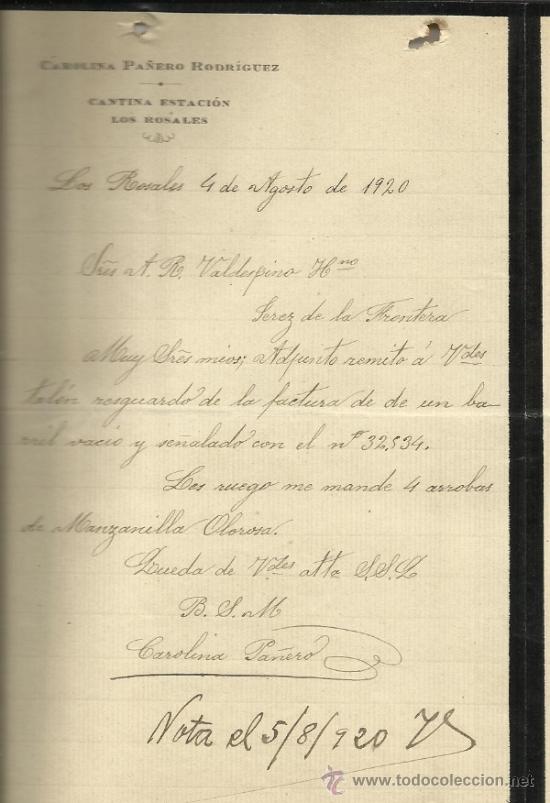 CAROLINA PAÑERO RODRÍGUEZ
CANTINA ESTACIÓN
LOS ROSALES
Los Rosales 4 de Agosto de 1920
Srēs A. R. Valdespino Hno
Jerez de la Frontera
Muy Srēs mios; Adjunto remito á Vdes
talón resguardo de la factura de de un ba-
rril vacio y señalado con el nº 32,534.
Les ruego me mande 4 arrobas
de Manzanilla Olorosa.
Queda de Vdes atta S.S.Q
B. S. M
Carolina Pañero
Nota el 5/8/920
todocoleccion
www.todocoleccion.net